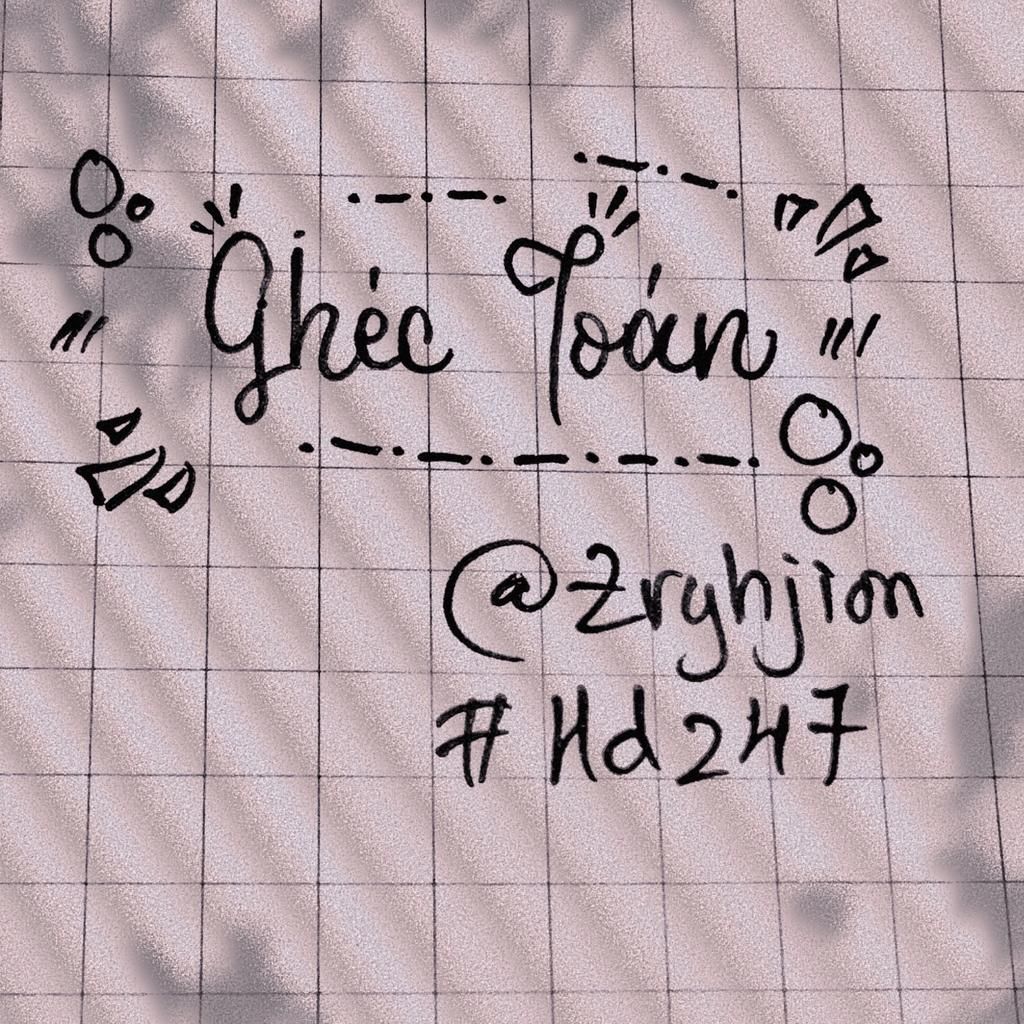 Ghéc Toán
@Zryhjion
#Hd247